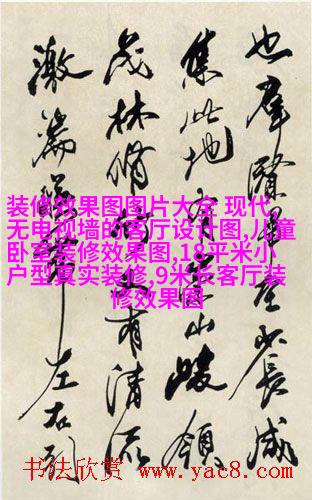 也群賢畢至少長咸
集此地有崇山峻領
茂林脩竹又有清流
激湍映帶左右引
装修效果图图片大全 现代
无电视墙的客厅设计图,儿童
卧室装修效果图,18平米小
户型真实装修,9米长客厅装
修效果图
书法欣赏 www.yac8.com